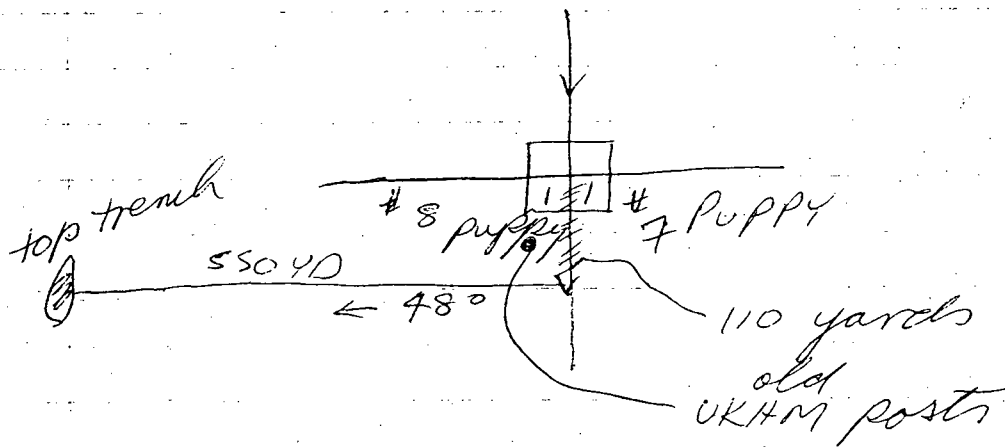 top trench
# 8 puppy
11
# 7 PUPPY
550 YD
← 48°
110 yards
old
posts